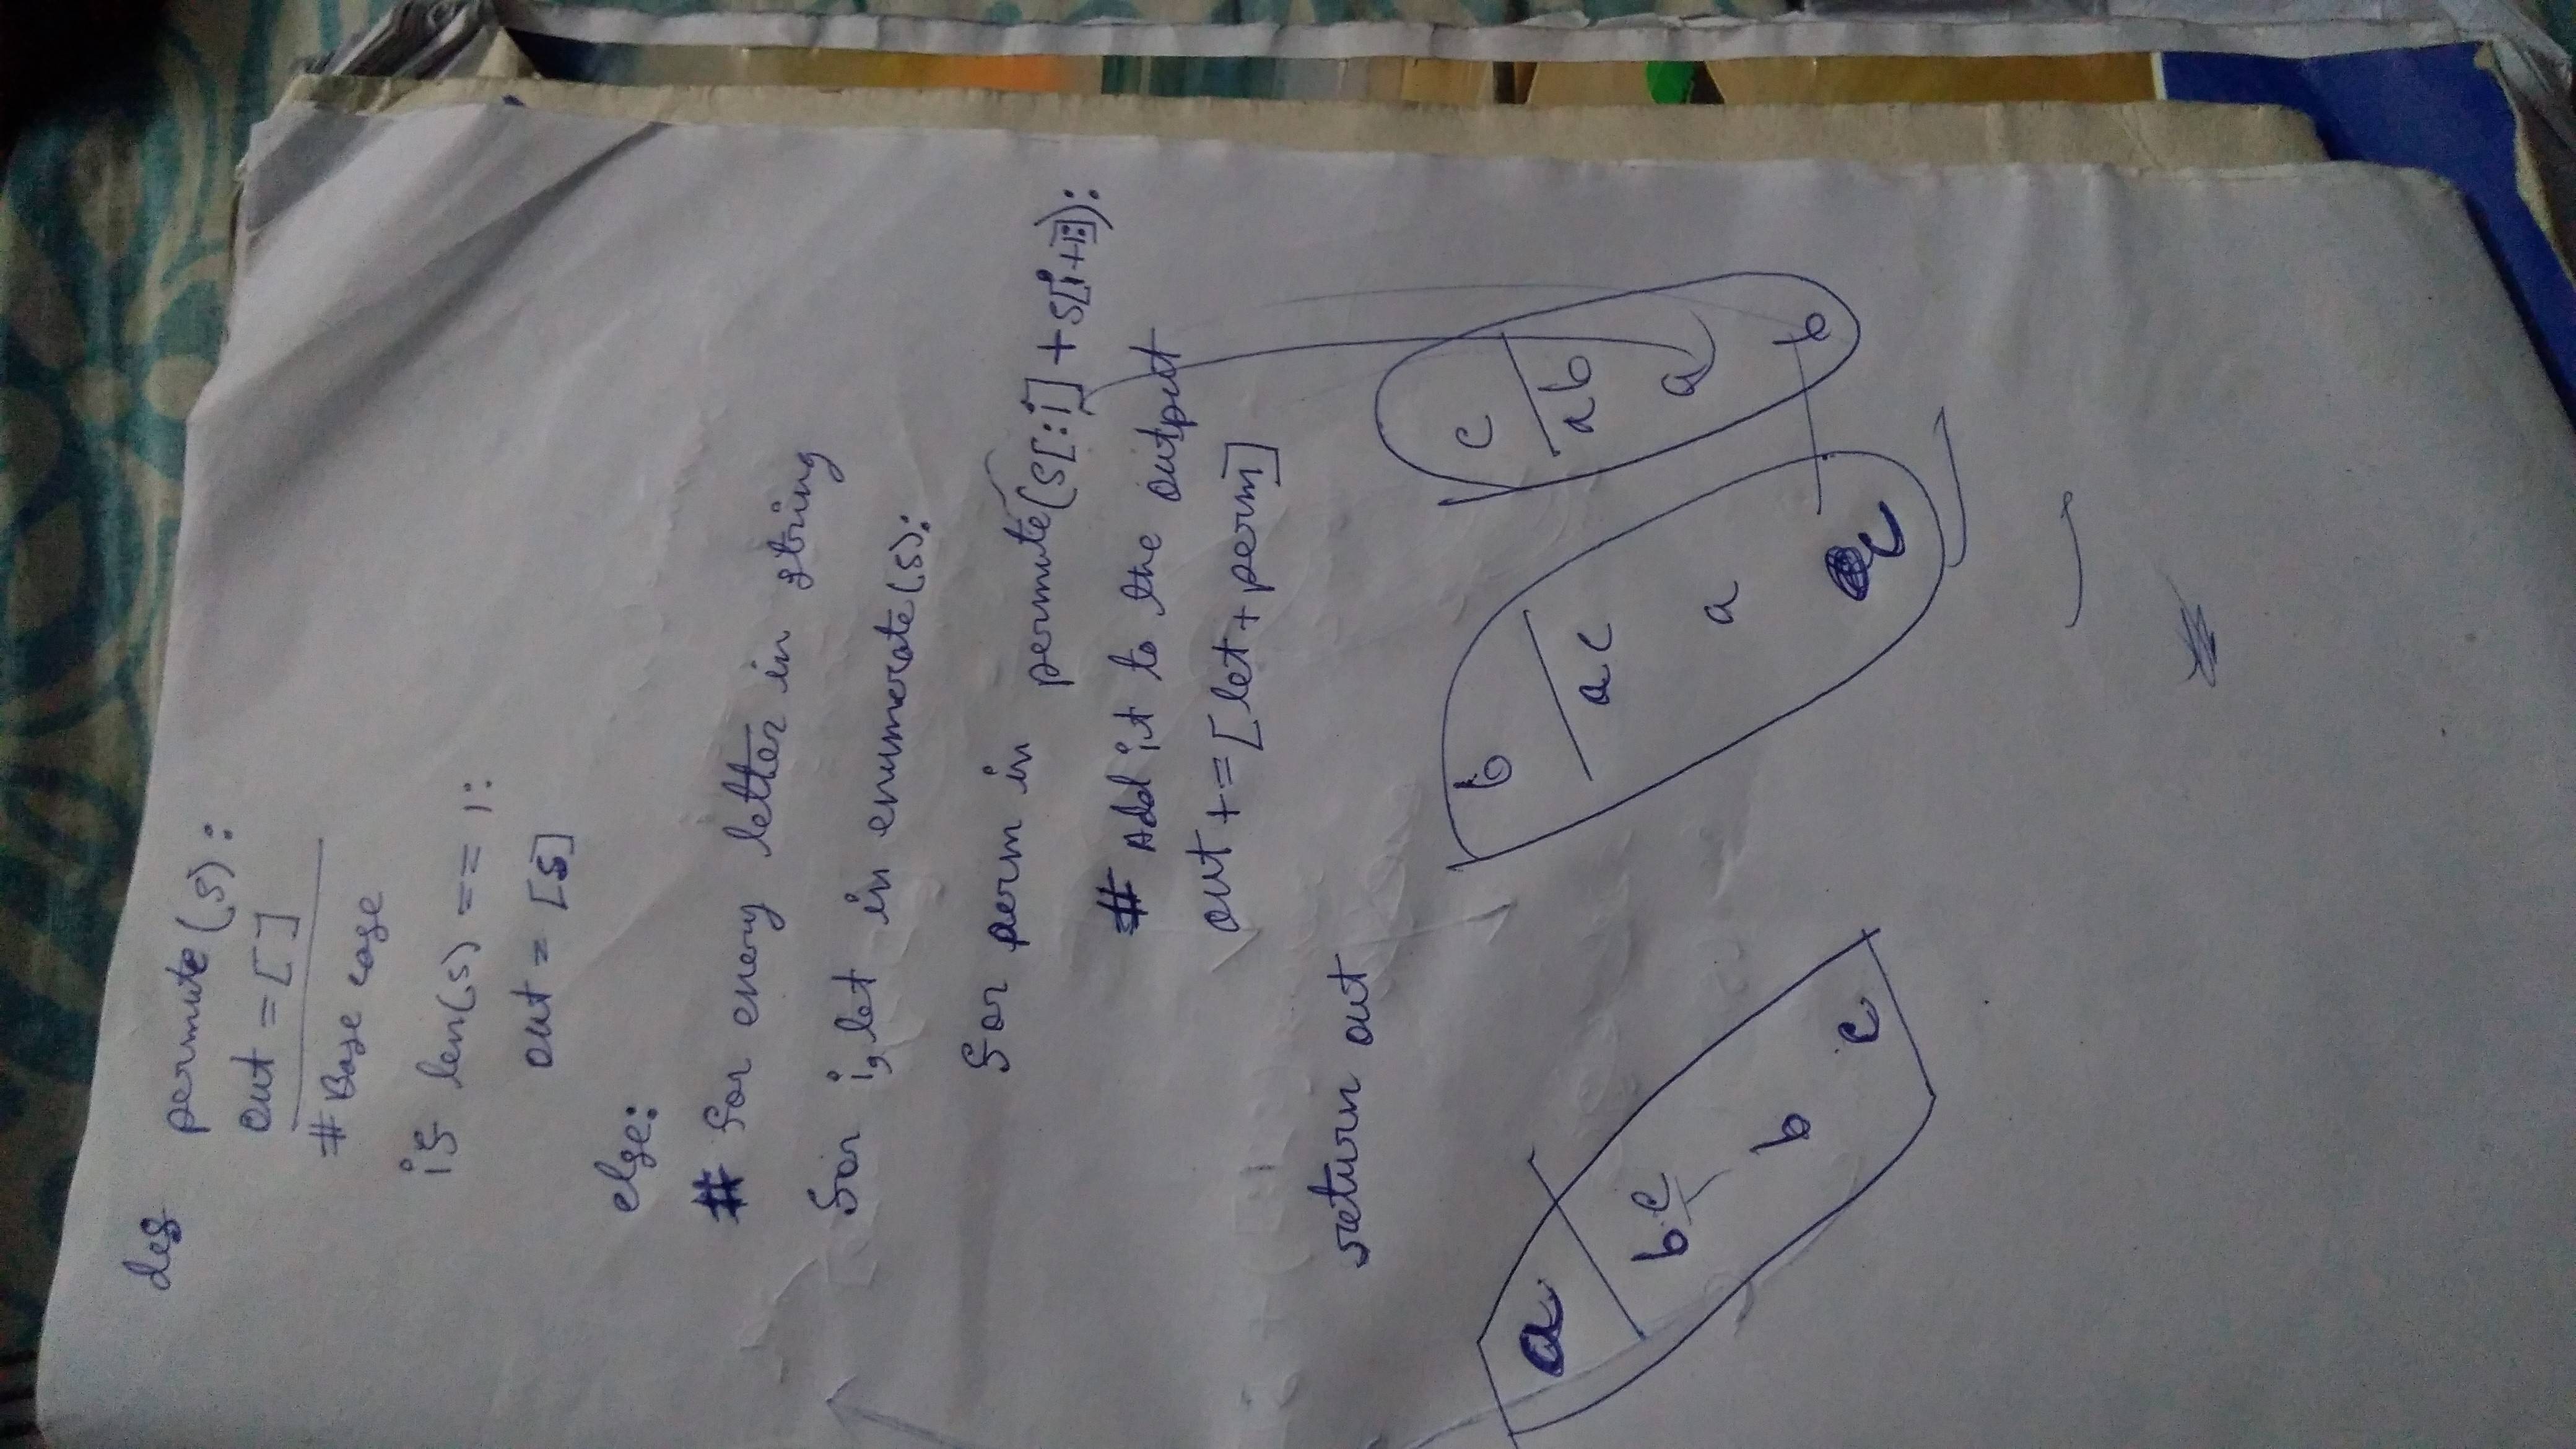 def permute(s):
out = []
# Base case
if len(s) == 1:
out = [s]
else:
# for every letter in string
for i, let in enumerate(s):
for perm in permute(s[:i] + s[i+1:]):
# Add it to the output
out += [let + perm]
return out
a b c
bc ac ab
b a a
c c b